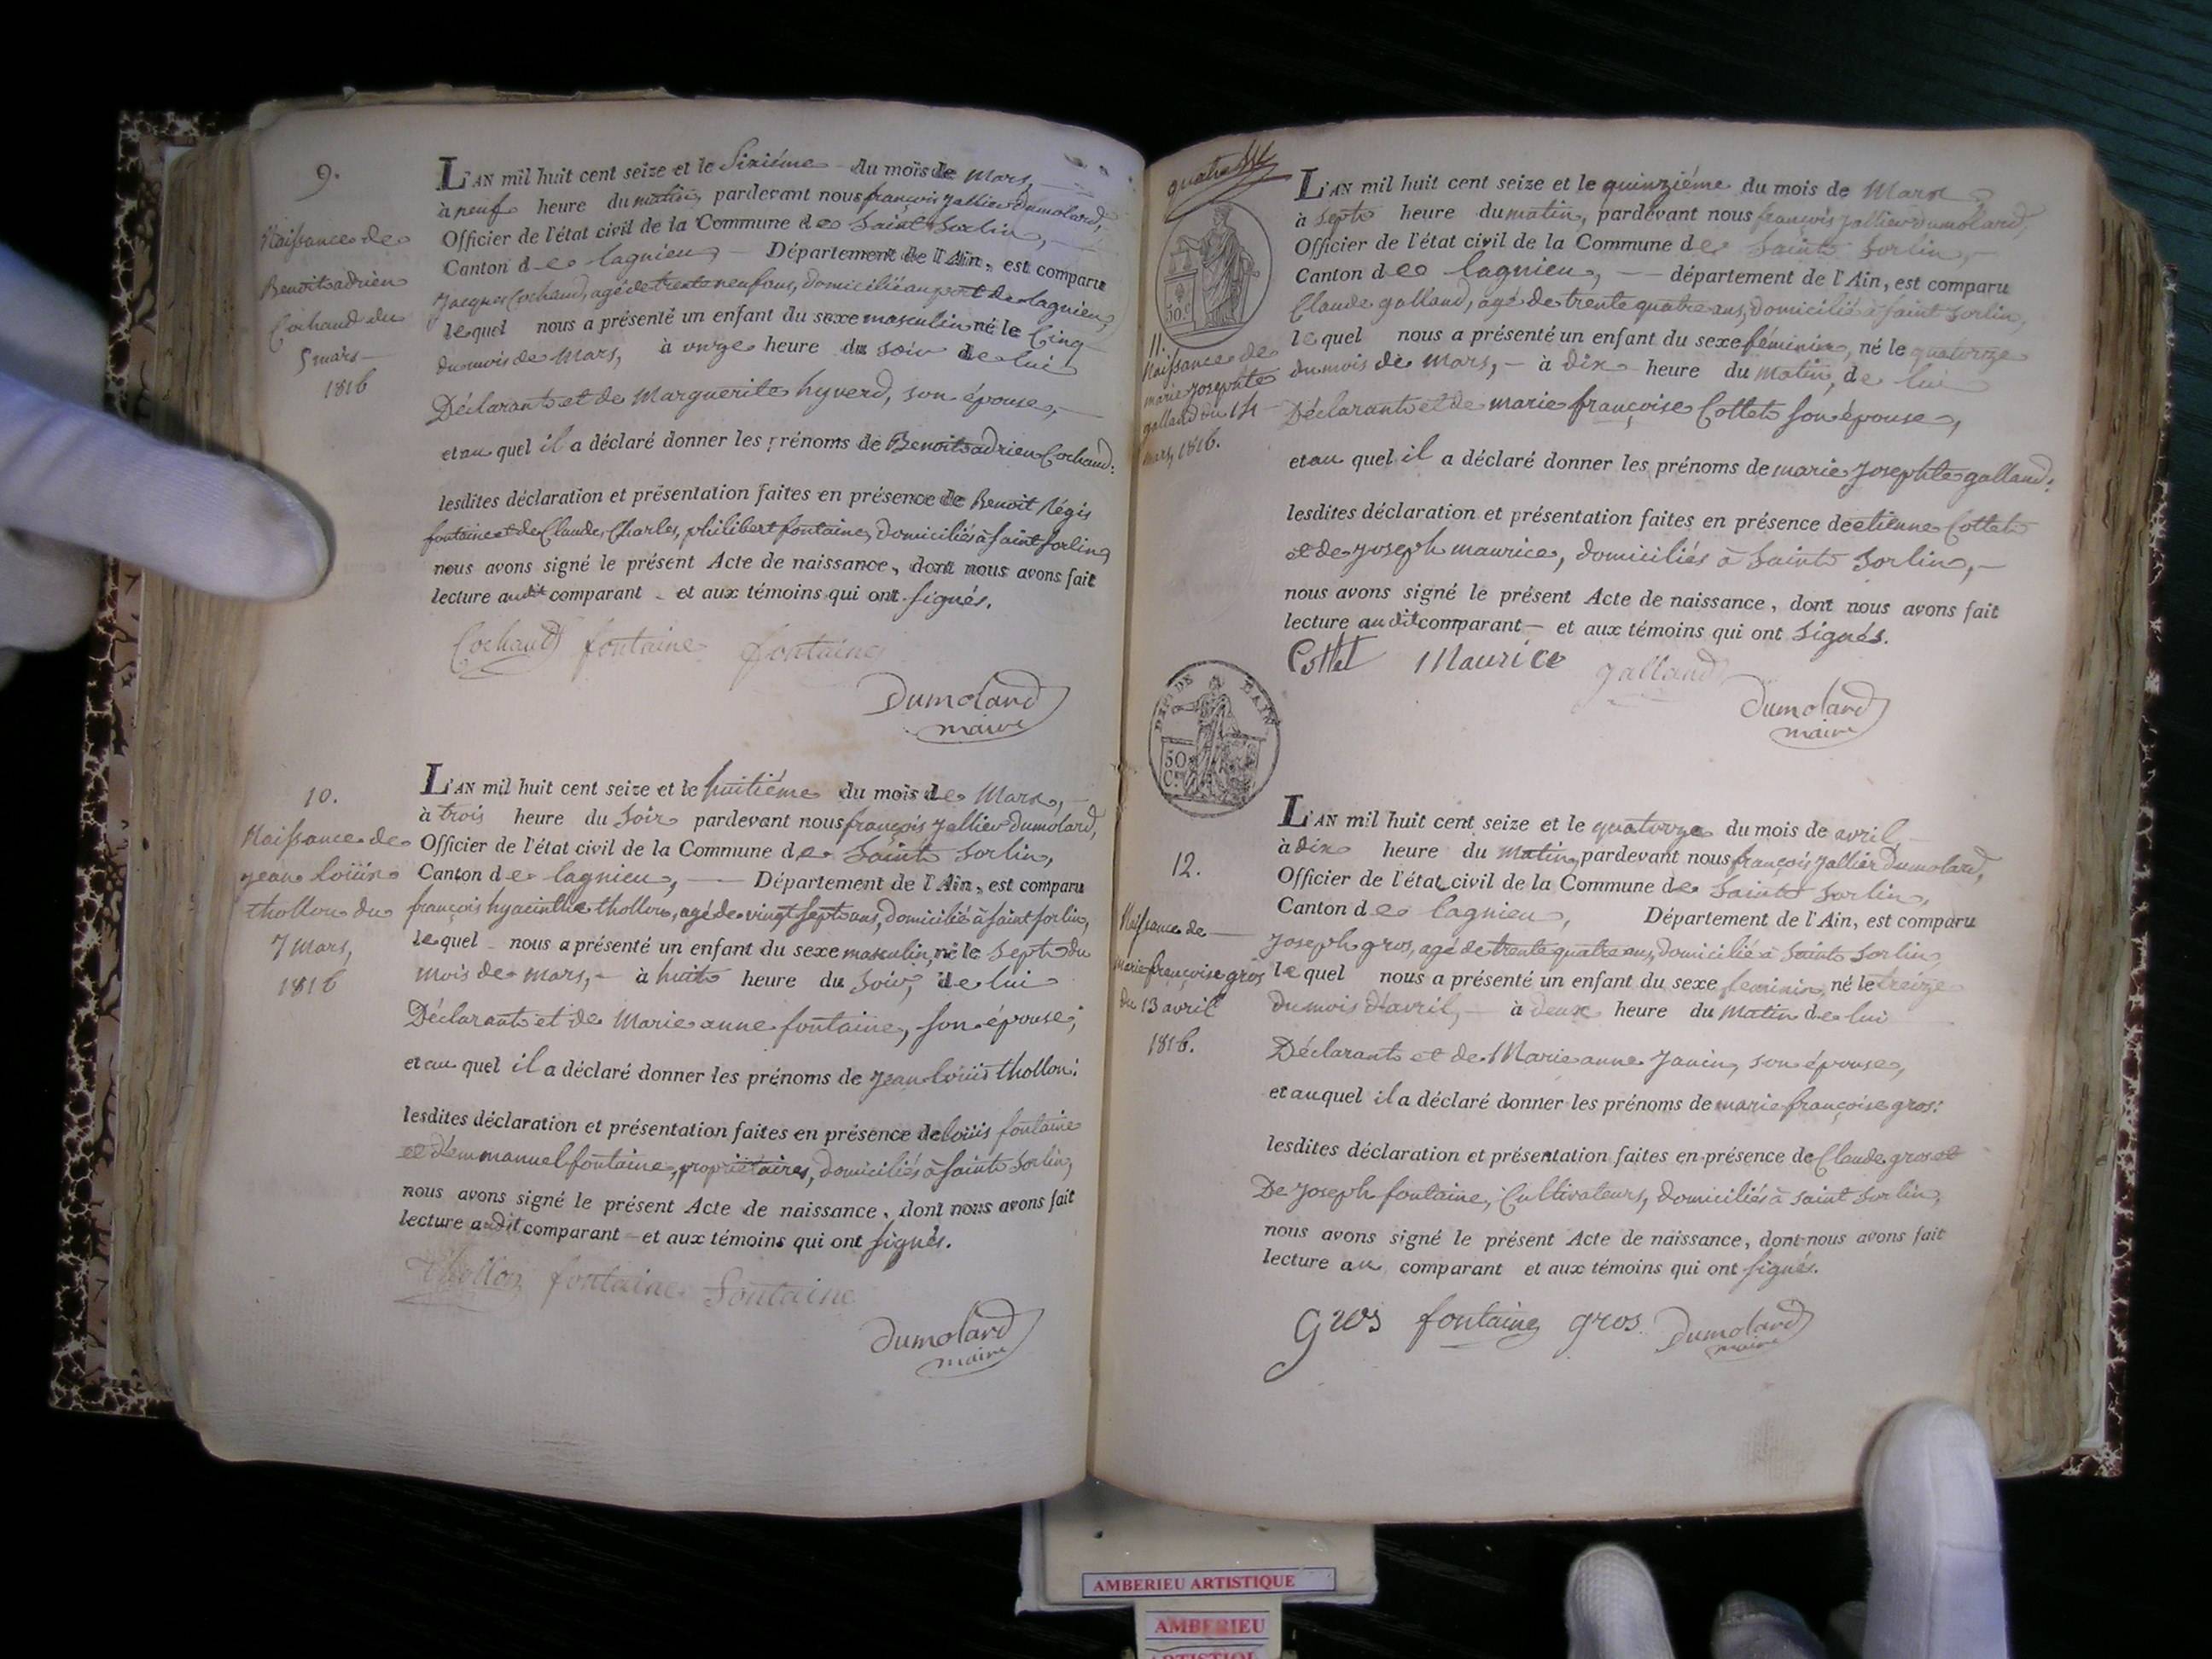 9.
Naissance de
Benoit adrien
Cochaud du
5 mars
1816
L'AN mil huit cent seize et le Sixiéme du mois de Mars,
à neuf heure du matin, pardevant nous françois Jallier Dumolard,
Officier de l'état civil de la Commune de Saint Sorlin,
Canton de lagnieu, Département de l'Ain, est comparu
Jacques Cochaud, agé de trente neuf ans, domicilié au port de lagnieu,
lequel nous a présenté un enfant du sexe masculin né le Cinq
du mois de Mars, à onze heure du soir de lui
Déclarant et de Marguerite hyverd, son épouse,
et au quel il a déclaré donner les prénoms de Benoit adrien Cochaud:
lesdites déclaration et présentation faites en présence de Benoit Régis
fontaine et de Claude, Charles, philibert fontaine, domiciliés à saint sorlin,
nous avons signé le présent Acte de naissance, dont nous avons fait
lecture audit comparant et aux témoins qui ont signés.
Cochaud fontaine fontaine
Dumolard
maire
10.
Naissance de
jean loüis
thollon du
7 mars,
1816
L'AN mil huit cent seize et le huitiéme du mois de Mars,
à trois heure du Soir pardevant nous françois Jallier Dumolard,
Officier de l'état civil de la Commune de Saint Sorlin,
Canton de lagnieu, Département de l'Ain, est comparu
françois hyacinthe thollon, agé de vingt sept ans, domicilié à saint sorlin,
lequel nous a présenté un enfant du sexe masculin, né le Sept du
mois de mars, à huit heure du Soir, de lui
Déclarant et de Marie anne fontaine, son épouse,
et au quel il a déclaré donner les prénoms de jean loüis thollon:
lesdites déclaration et présentation faites en présence de loüis fontaine
et d'emmanuel fontaine, propriétaires, domiciliés à saint Sorlin,
nous avons signé le présent Acte de naissance, dont nous avons fait
lecture audit comparant et aux témoins qui ont signés.
thollon fontaine fontaine
Dumolard
maire
quatre
50.c
11.
Naissance de
marie Josephte
galland du 14
mars, 1816.
L'AN mil huit cent seize et le quinziéme du mois de Mars
à Sept heure du matin, pardevant nous françois Jallier Dumolard,
Officier de l'état civil de la Commune de Saint Sorlin,
Canton de lagnieu, département de l'Ain, est comparu
Claude galland, agé de trente quatre ans, domicilié à saint sorlin,
lequel nous a présenté un enfant du sexe féminin, né le quatorze
du mois de mars, à dix heure du Matin, de lui
Déclarant et de marie françoise Cottet son épouse,
et au quel il a déclaré donner les prénoms de marie Josephte galland:
lesdites déclaration et présentation faites en présence de etienne Cottet
et de joseph maurice, domiciliés à Saint Sorlin,
nous avons signé le présent Acte de naissance, dont nous avons fait
lecture audit comparant et aux témoins qui ont signés.
Cottet Maurice galland
Dumolard
maire
DE L'AIN
50
C.
12.
Naissance de
marie françoise gros
du 13 avril
1816.
L'AN mil huit cent seize et le quatorze du mois de avril
à dix heure du Matin, pardevant nous françois Jallier Dumolard,
Officier de l'état civil de la Commune de Saint Sorlin,
Canton de lagnieu, Département de l'Ain, est comparu
Joseph gros, agé de trente quatre ans, domicilié à Saint Sorlin,
lequel nous a présenté un enfant du sexe feminin, né le treize
du mois d'avril, à deux heure du Matin de lui
Déclarant et de Marie anne Janin, son épouse,
et auquel il a déclaré donner les prénoms de marie françoise gros:
lesdites déclaration et présentation faites en présence de Claude gros et
De Joseph fontaine, Cultivateurs, domiciliés à saint Sorlin,
nous avons signé le présent Acte de naissance, dont nous avons fait
lecture au comparant et aux témoins qui ont signés.
Gros fontaine gros Dumolard
maire
AMBERIEU ARTISTIQUE
AMBERIEU
ARTISTIQUE